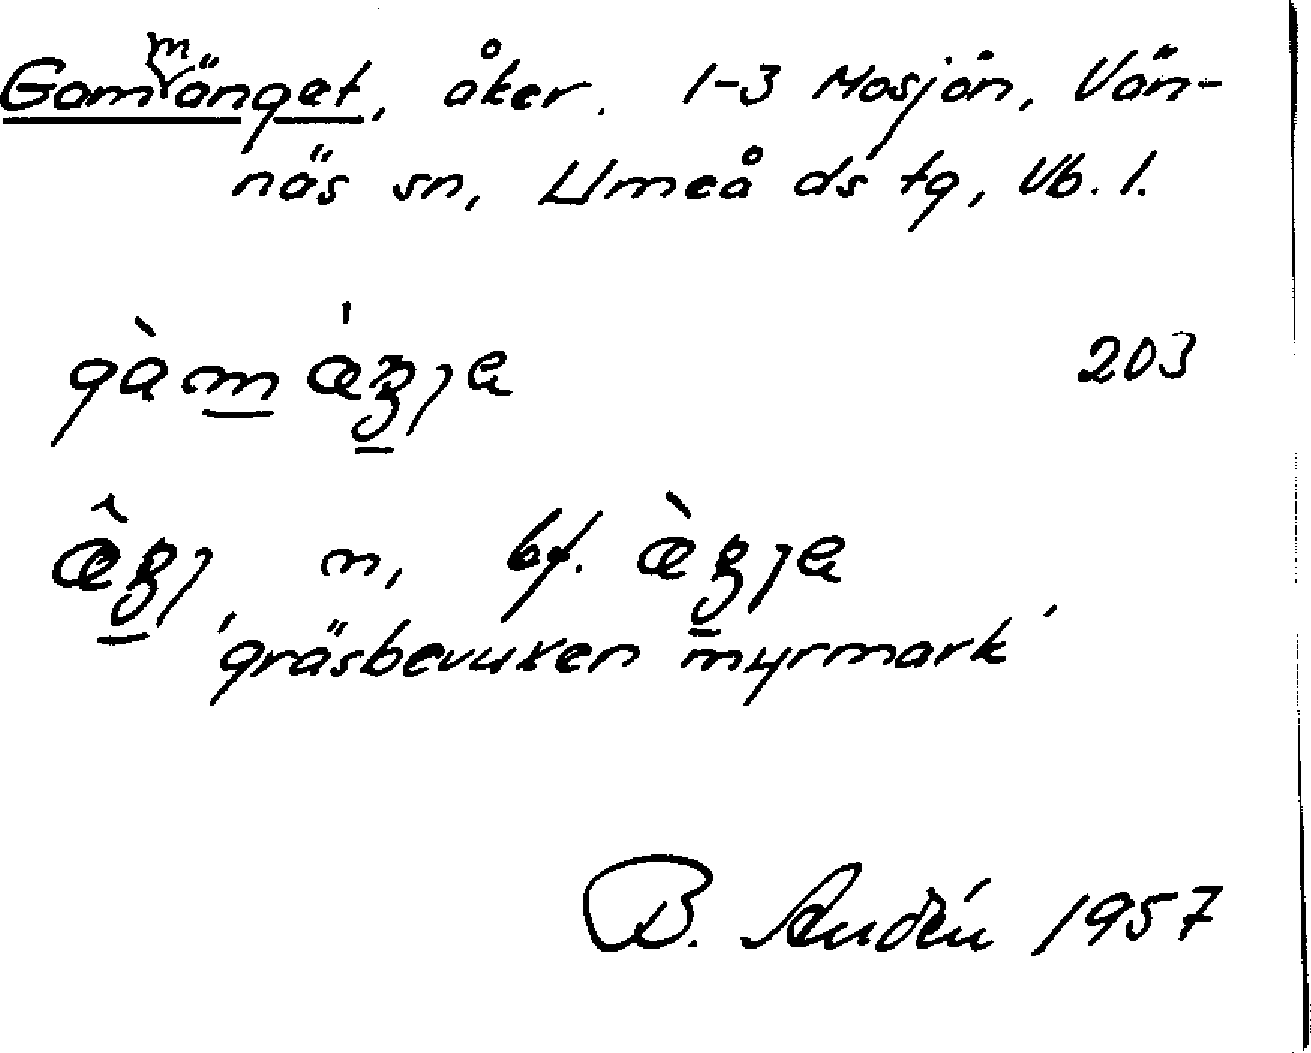 Gammänget, åker. 1-3 Mosjön, Vän-
näs sn, Umeå ds tg, Vb. l.
gàmǽŋɟe 203
æ̂ŋɟ n, bf. æ̀ŋɟe
'gräsbevuxen myrmark'
B. Audén 1957